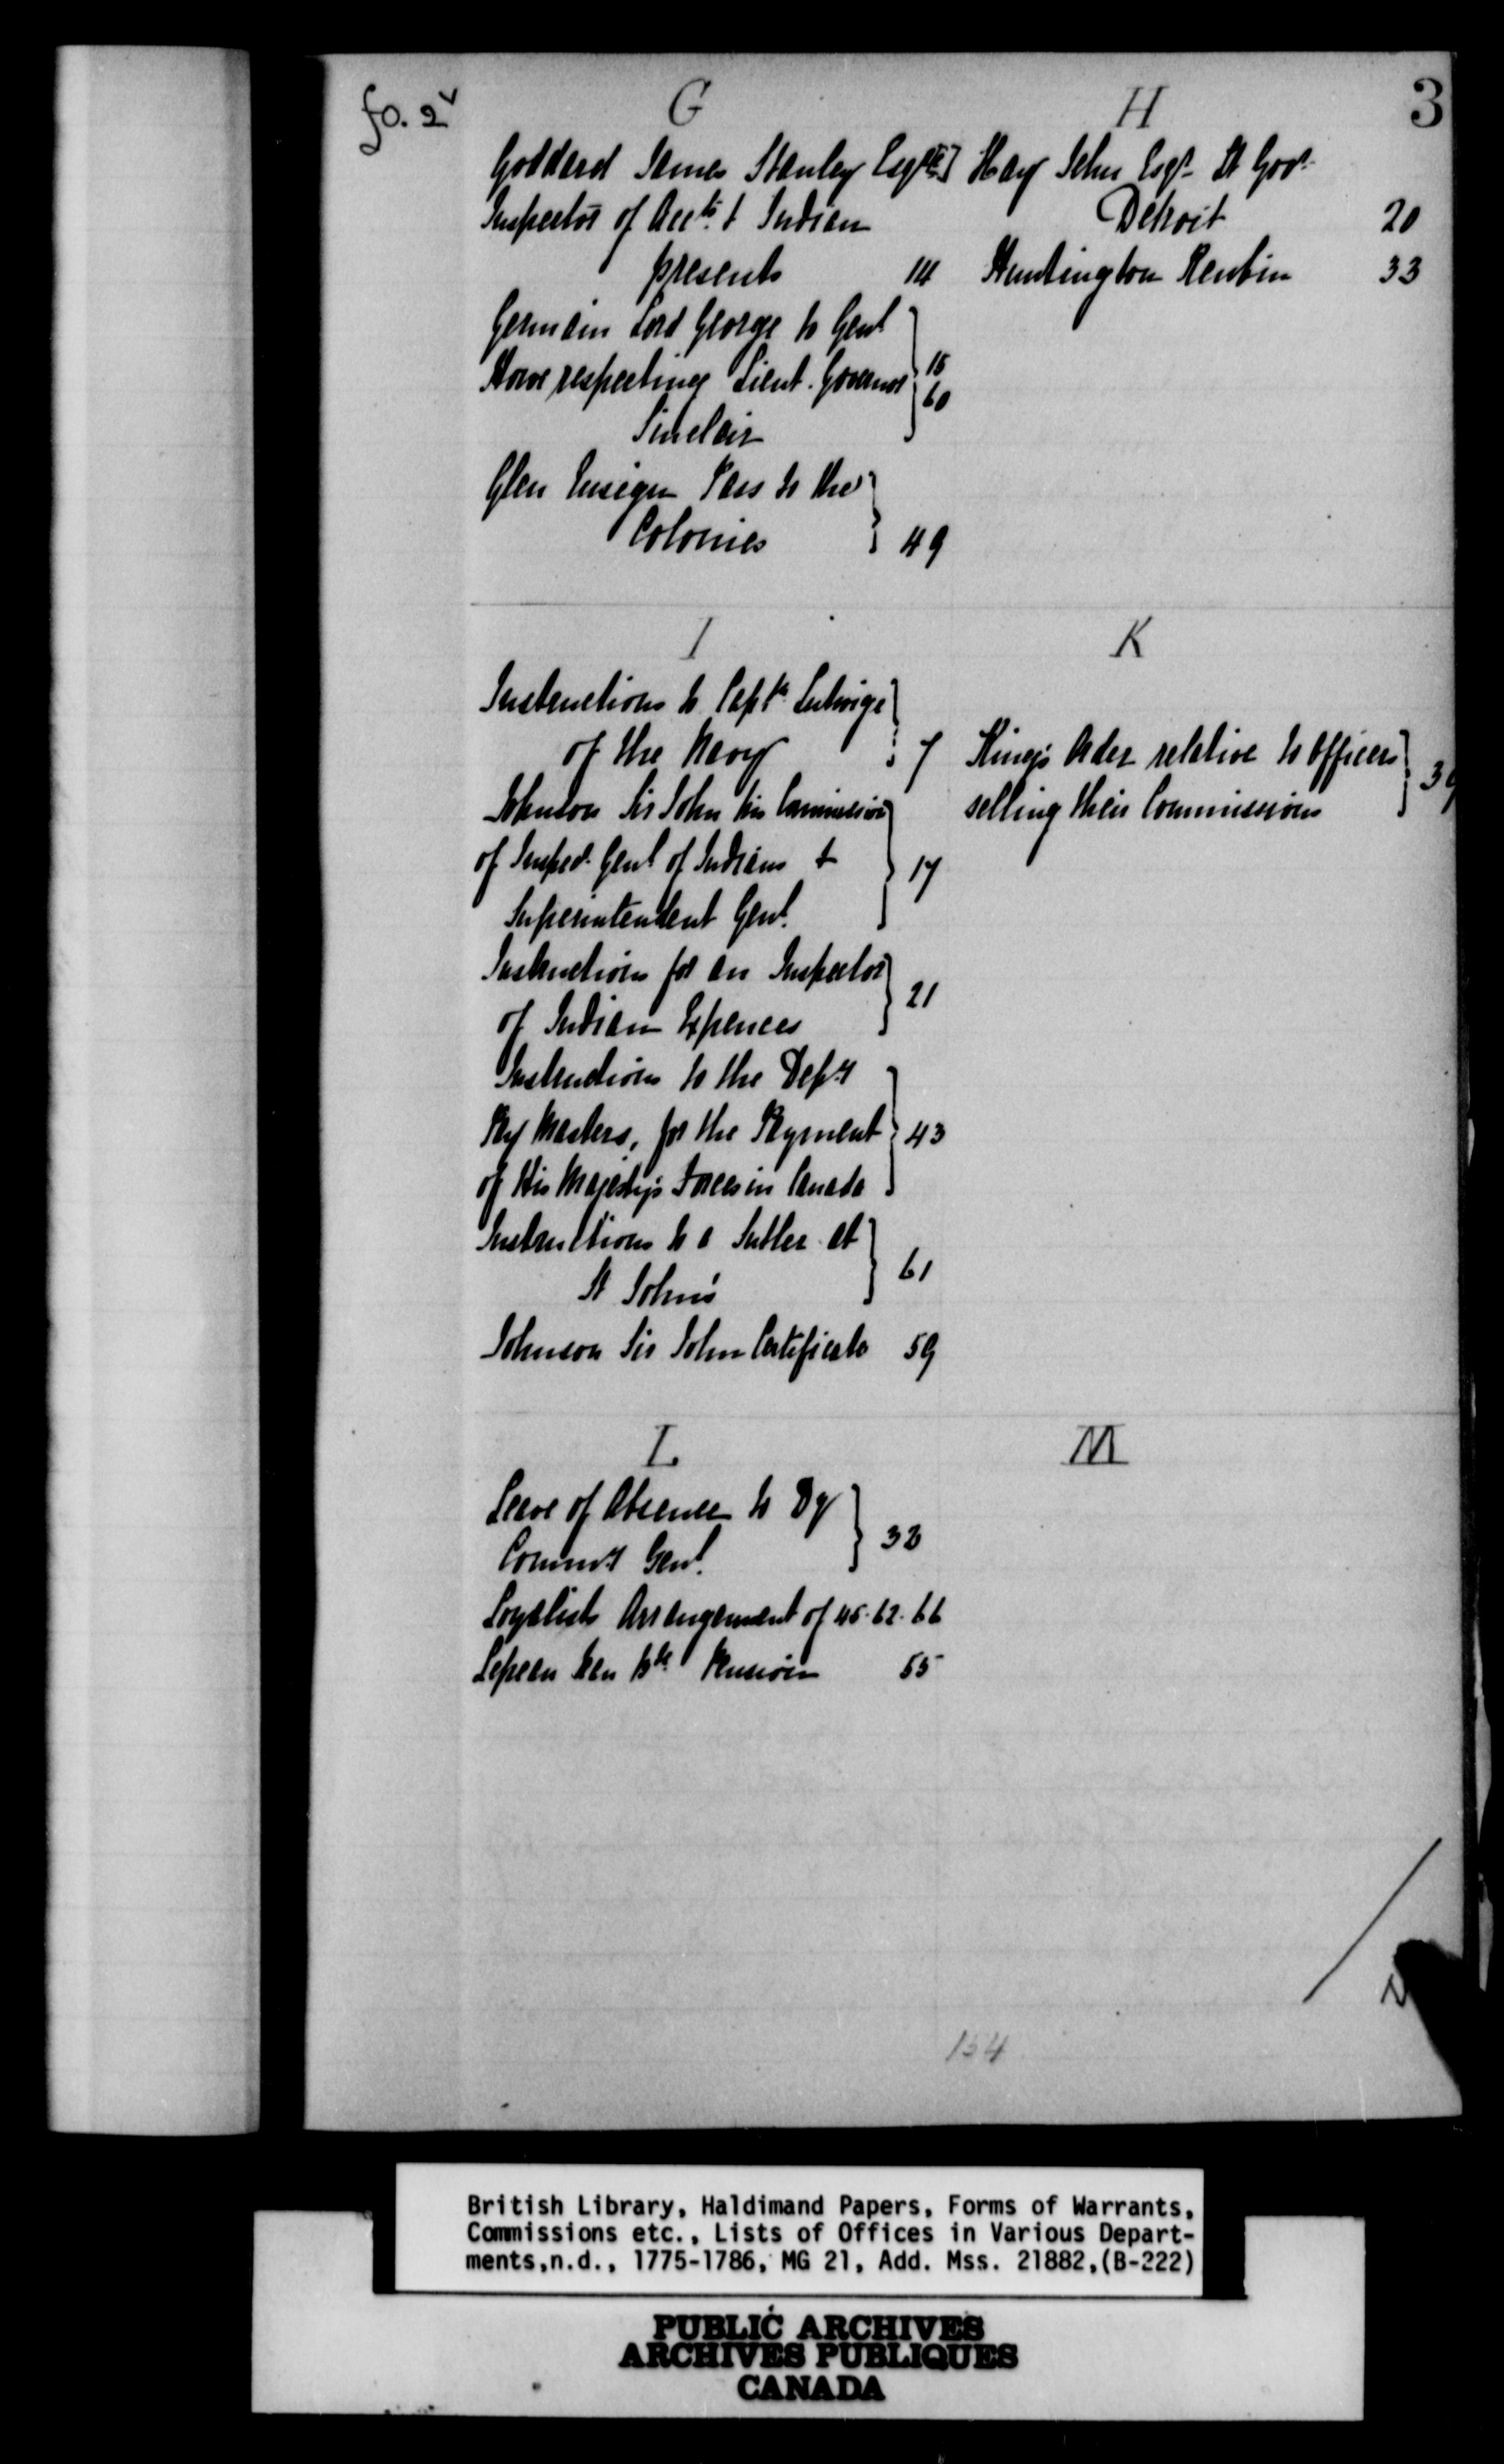 fo. 2v
3
G
Goddard James Stanley Esqre
Inspector of Accts & Indian
presents 14
Germain Lord George to Genl
Howe respecting Lieut. Governor
Sinclair
15
60
Glen Ensign Pass to the
Colonies 49
H
Hay John Esqr Lt Govr
Detroit 20
Huntington Reubin 33
I
Instructions to Captn Lutwige
of the Navy 7
Johnson Sir John his Commission
of Inspecr Genl of Indians &
Superintendent Genl. 17
Instructions for an Inspector
of Indian Expences 21
Instructions to the Depy
Pay Masters, for the Payment
of His Majesty's Forces in Canada 43
Instructions to a Sutler at
St John's 61
Johnson Sir John Certificate 59
K
King's Order relative to Officers
selling their Commissions
L
Leave of Absence to Dy
Commy Genl. 38
Loyalists Arrangement of 45. 62. 66
Pension 55
M
134
British Library, Haldimand Papers, Forms of Warrants,
Commissions etc., Lists of Offices in Various Depart-
ments,n.d., 1775-1786, MG 21, Add. Mss. 21882,(B-222)
PUBLIC ARCHIVES
ARCHIVES PUBLIQUES
CANADA